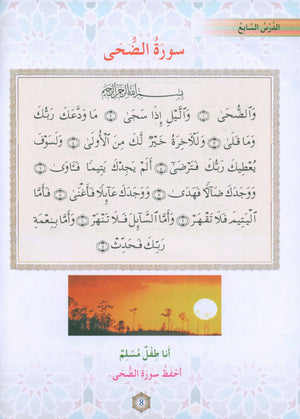 الدَّرْسُ السَّابِعُ
سورَةُ الضُّحَى
بِسْمِ اللَّهِ الرَّحْمَٰنِ الرَّحِيمِ
وَالضُّحَىٰ ۝١ وَاللَّيْلِ إِذَا سَجَىٰ ۝٢ مَا وَدَّعَكَ رَبُّكَ
وَمَا قَلَىٰ ۝٣ وَلَلْآخِرَةُ خَيْرٌ لَّكَ مِنَ الْأُولَىٰ ۝٤ وَلَسَوْفَ
يُعْطِيكَ رَبُّكَ فَتَرْضَىٰ ۝٥ أَلَمْ يَجِدْكَ يَتِيمًا فَآوَىٰ ۝٦
وَوَجَدَكَ ضَالًّا فَهَدَىٰ ۝٧ وَوَجَدَكَ عَائِلًا فَأَغْنَىٰ ۝٨ فَأَمَّا
الْيَتِيمَ فَلَا تَقْهَرْ ۝٩ وَأَمَّا السَّائِلَ فَلَا تَنْهَرْ ۝١٠ وَأَمَّا بِنِعْمَةِ
رَبِّكَ فَحَدِّثْ ۝١١
أَنا طِفْلٌ مُسْلِمٌ
أَحْفَظُ سورَةَ الضُّحَى.
8